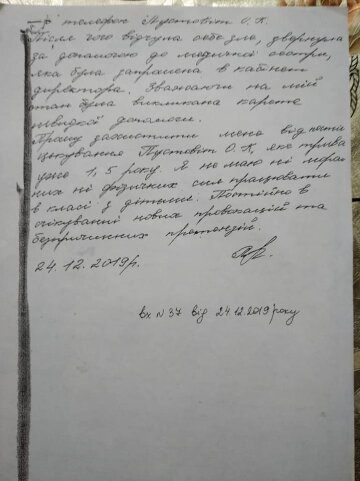 телефон Пустовіт О. К.
Після чого відчула себе зле, звернула
за допомогою до медичної сестри,
яка була запрошена в кабінет
директора. Зважаючи на мій
стан була викликана карета
швидкої допомоги.
Прошу захистити мене від
цькування Пустовіт О. К, яке трива
уже 1,5 року. Я не маю ні мора
них ні фізичних сил працювати
в класі з дітьми. Постійно в
очікуванні нових провокацій та
безпричинних претензій.
24.12.2019р.
вх. N 37 від 24.12.2019 року